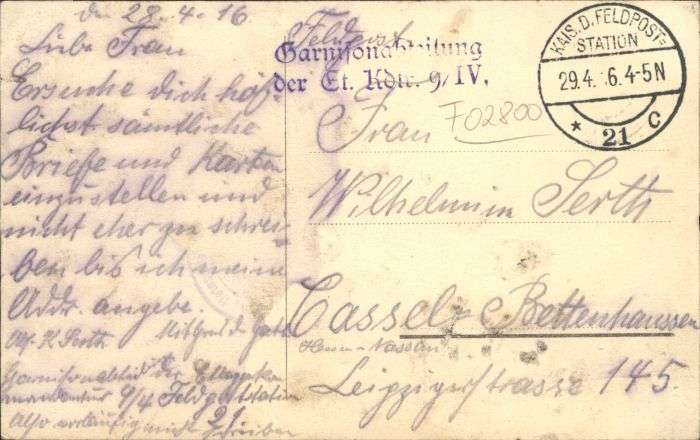 den 28.4.16
Liebe Frau
Ersuche dich höf-
lichst sämtliche
Briefe und Karten
einzustellen und
nicht eher zu schrei-
ben bis ich meine
Addr. angebe.
Feldpost
Garnisonabteilung
der Et. Kdtr. 9/IV.
KAIS. D. FELDPOST=
STATION
29.4. 16. 4-5N
* 21 c
F02800
Frau
Wilhelmin Serth
Cassel-Bettenhaussen
Hessen-Nassau
Leipzigerstrasse 145.
Abs. K Serth
Garnisonabteil der Etappenko
mandantur 9/4 Feldpoststation
21
Also vorläufig nicht schreiben